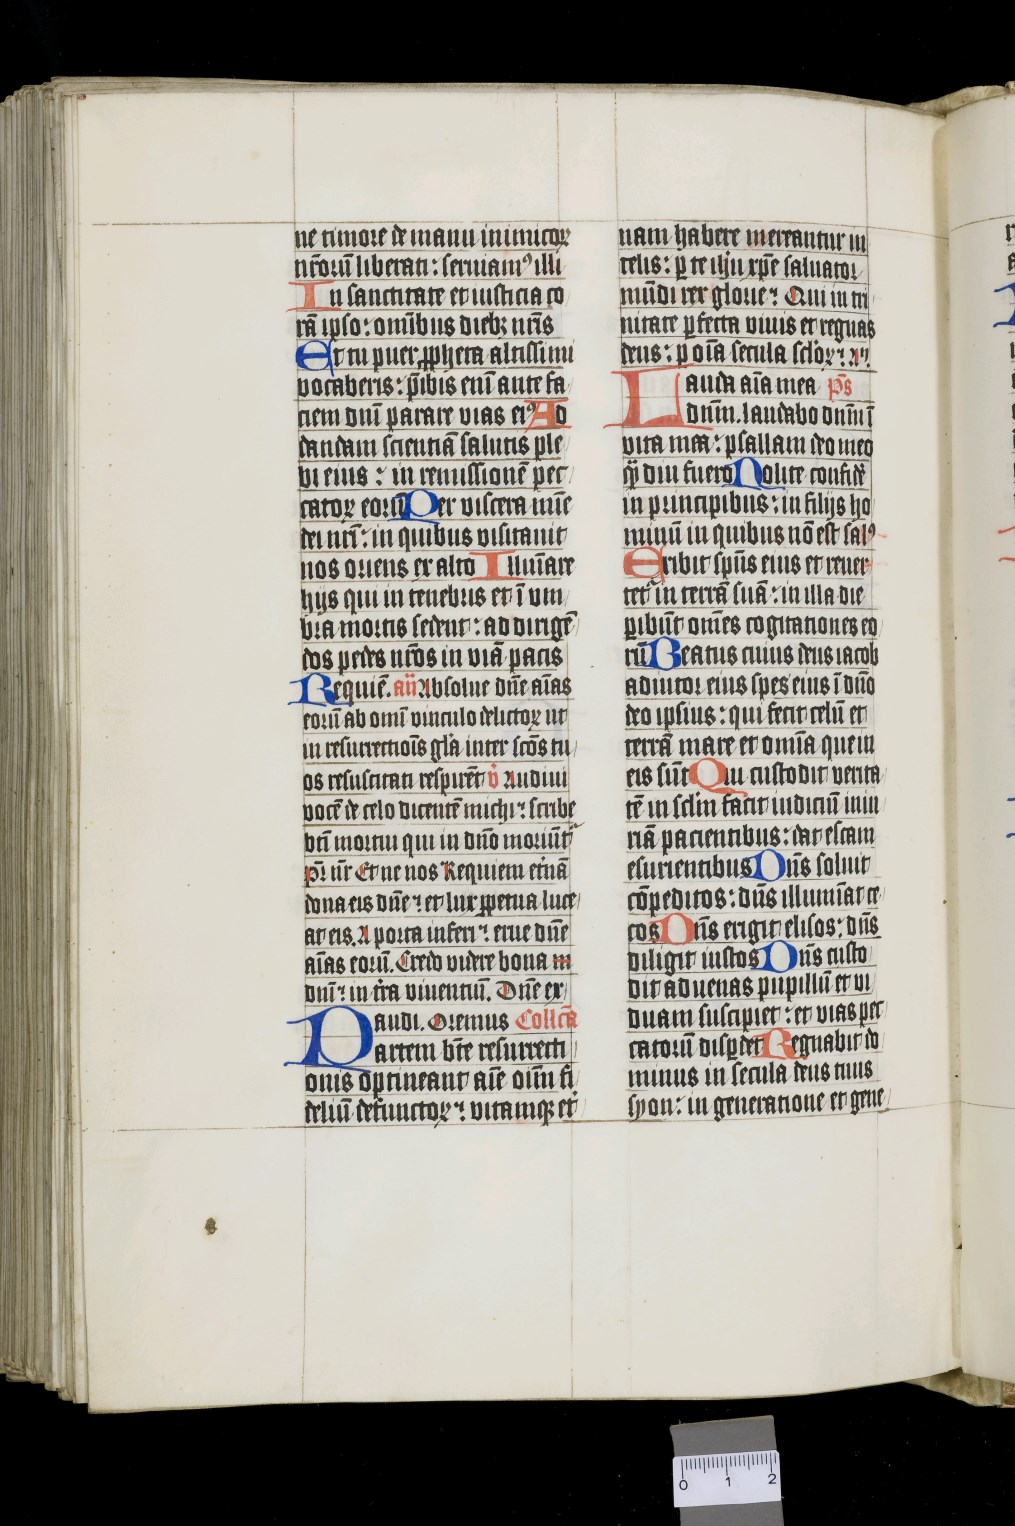 ne timore de manu inimicoꝝ
nr̄orū liberati : seruiamꝰ illi
In sanctitate et iusticia co
rā ipso : omībus diebꝫ nr̄is
Et tu puer ꝓpheta altissimi
vocaberis : p̄ibis eni᷄ ante fa
ciem dnī parare vias eiꝰ Ad
dandam scientiā salutis ple
bi eius : in remissionē pec
catoꝝ eorū Per viscera mīe
dei nrī : in quibus visitauit
nos oriens ex alto Illumīare
hijs qui in tenebris et ī vm
bra mortis sedent : ad dirigē
dos pedes nr̄os in viā pacis
Requiē . an̄ Absolue dn̄e aīas
eorū ab omī vinculo delictoꝝ ut
in resurrectiōis gl̄a inter scōs tu
os resuscitati respirēt v̄ Audiui
vocē de celo dicentē michi : scribe
bt̄i mortui qui in dnō moriūt᷑
pr̄ nr̄ Et ne nos Requiem et̄nā
dona eis dn̄e : et lux ꝑpetua luce
at eis . A porta inferi : erue dn̄e
aīas eorū . Credo videre bona
dnī : in t̄ra viuentiū . Dn̄e ex
audi . Oremus Collc̄a
Partem bt̄e resurrecti
onis optineant aīe oīm fi
deliū defunctoꝝ : vitamqꝫ et̄
nam habere mereantur in
celis : p te ihū xp̄e saluator
mūdi rex glorie : Qui in tri
nitate ꝑfecta viuis et regnas
deus : p oīa secula scl̄oꝝ : an̄
Lauda aīa mea p̄s
dnm̄ . laudabo dnm̄ ī
vita mea : psallam deo meo
qͣdiu fuero Nolite confidē
in principibus : in filijs ho
minū in quibus nō est salꝰ
Exibit sp̄us eius et reuer
tet᷑ in terrā suā : in illa die
ꝑibūt om̄es cogitationes eo
rū Beatus cuius deus iacob
adiutor eius spes eius ī dnō
deo ipsius : qui fecit celū et
terrā mare et omīa que in
eis sūt Qui custodit verita
tē in scl̄m facit iudiciū iniu
riā pacientibus : dat escam
esurientibus Dn̄s soluit
cōpeditos : dn̄s illumīat ce
cos Dn̄s erigit elisos : dn̄s
diligit iustos Dn̄s custo
dit aduenas pupillū et vi
duam suscipiet : et vias pec
catorū disꝑdet Regnabit do
minus in secula deus tuus
syon : in generatione et gene